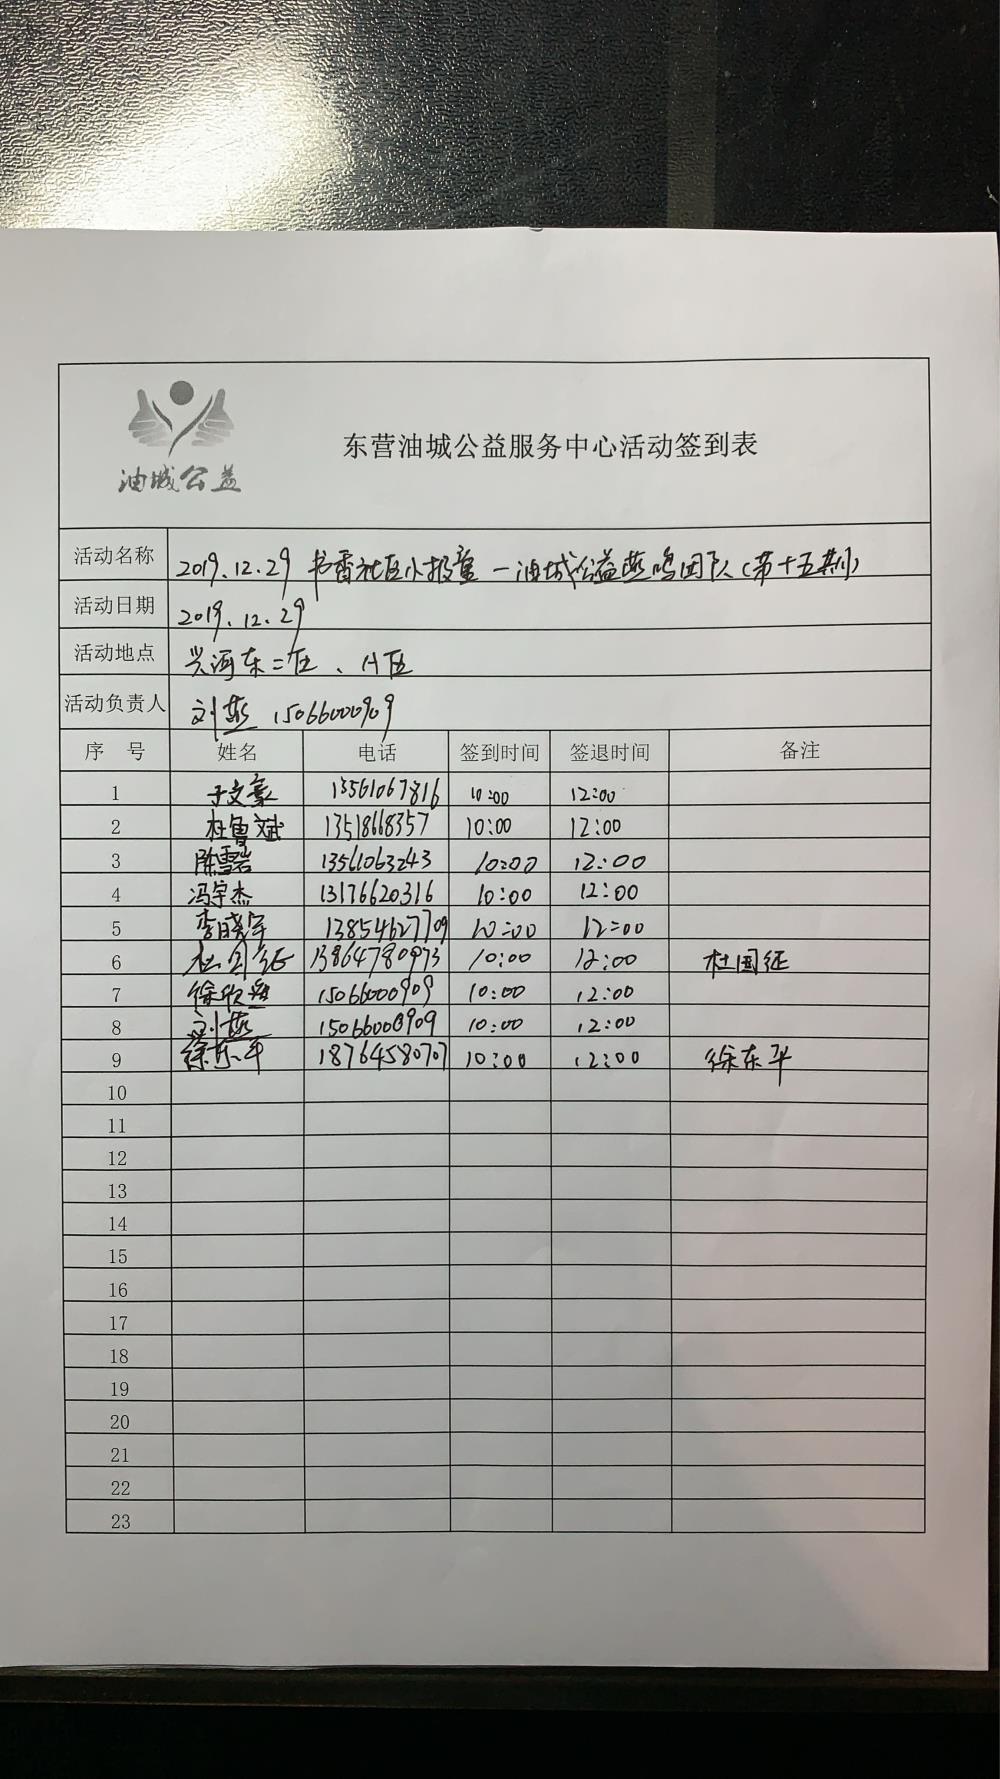 油城公益
东营油城公益服务中心活动签到表
活动名称 2019.12.29 书香社区小报童－油城公益燕鸣团队(第十五期)
活动日期 2019.12.29
活动地点 兴河东二区、八区
活动负责人 刘燕 15066000909
序 号 姓名 电话 签到时间 签退时间 备注
1 于文豪 13561067816 10:00 12:00
2 杜鲁斌 13518668357 10:00 12:00
3 陈雪岩 13561063243 10:00 12:00
4 冯宇杰 13176620316 10:00 12:00
5 李晓军 13854627709 10:00 12:00
6 杜国征 13864780973 10:00 12:00 杜国征
7 徐欣 15066000909 10:00 12:00
8 刘燕 15066000909 10:00 12:00
9 徐东平 18764580707 10:00 12:00 徐东平
10
11
12
13
14
15
16
17
18
19
20
21
22
23